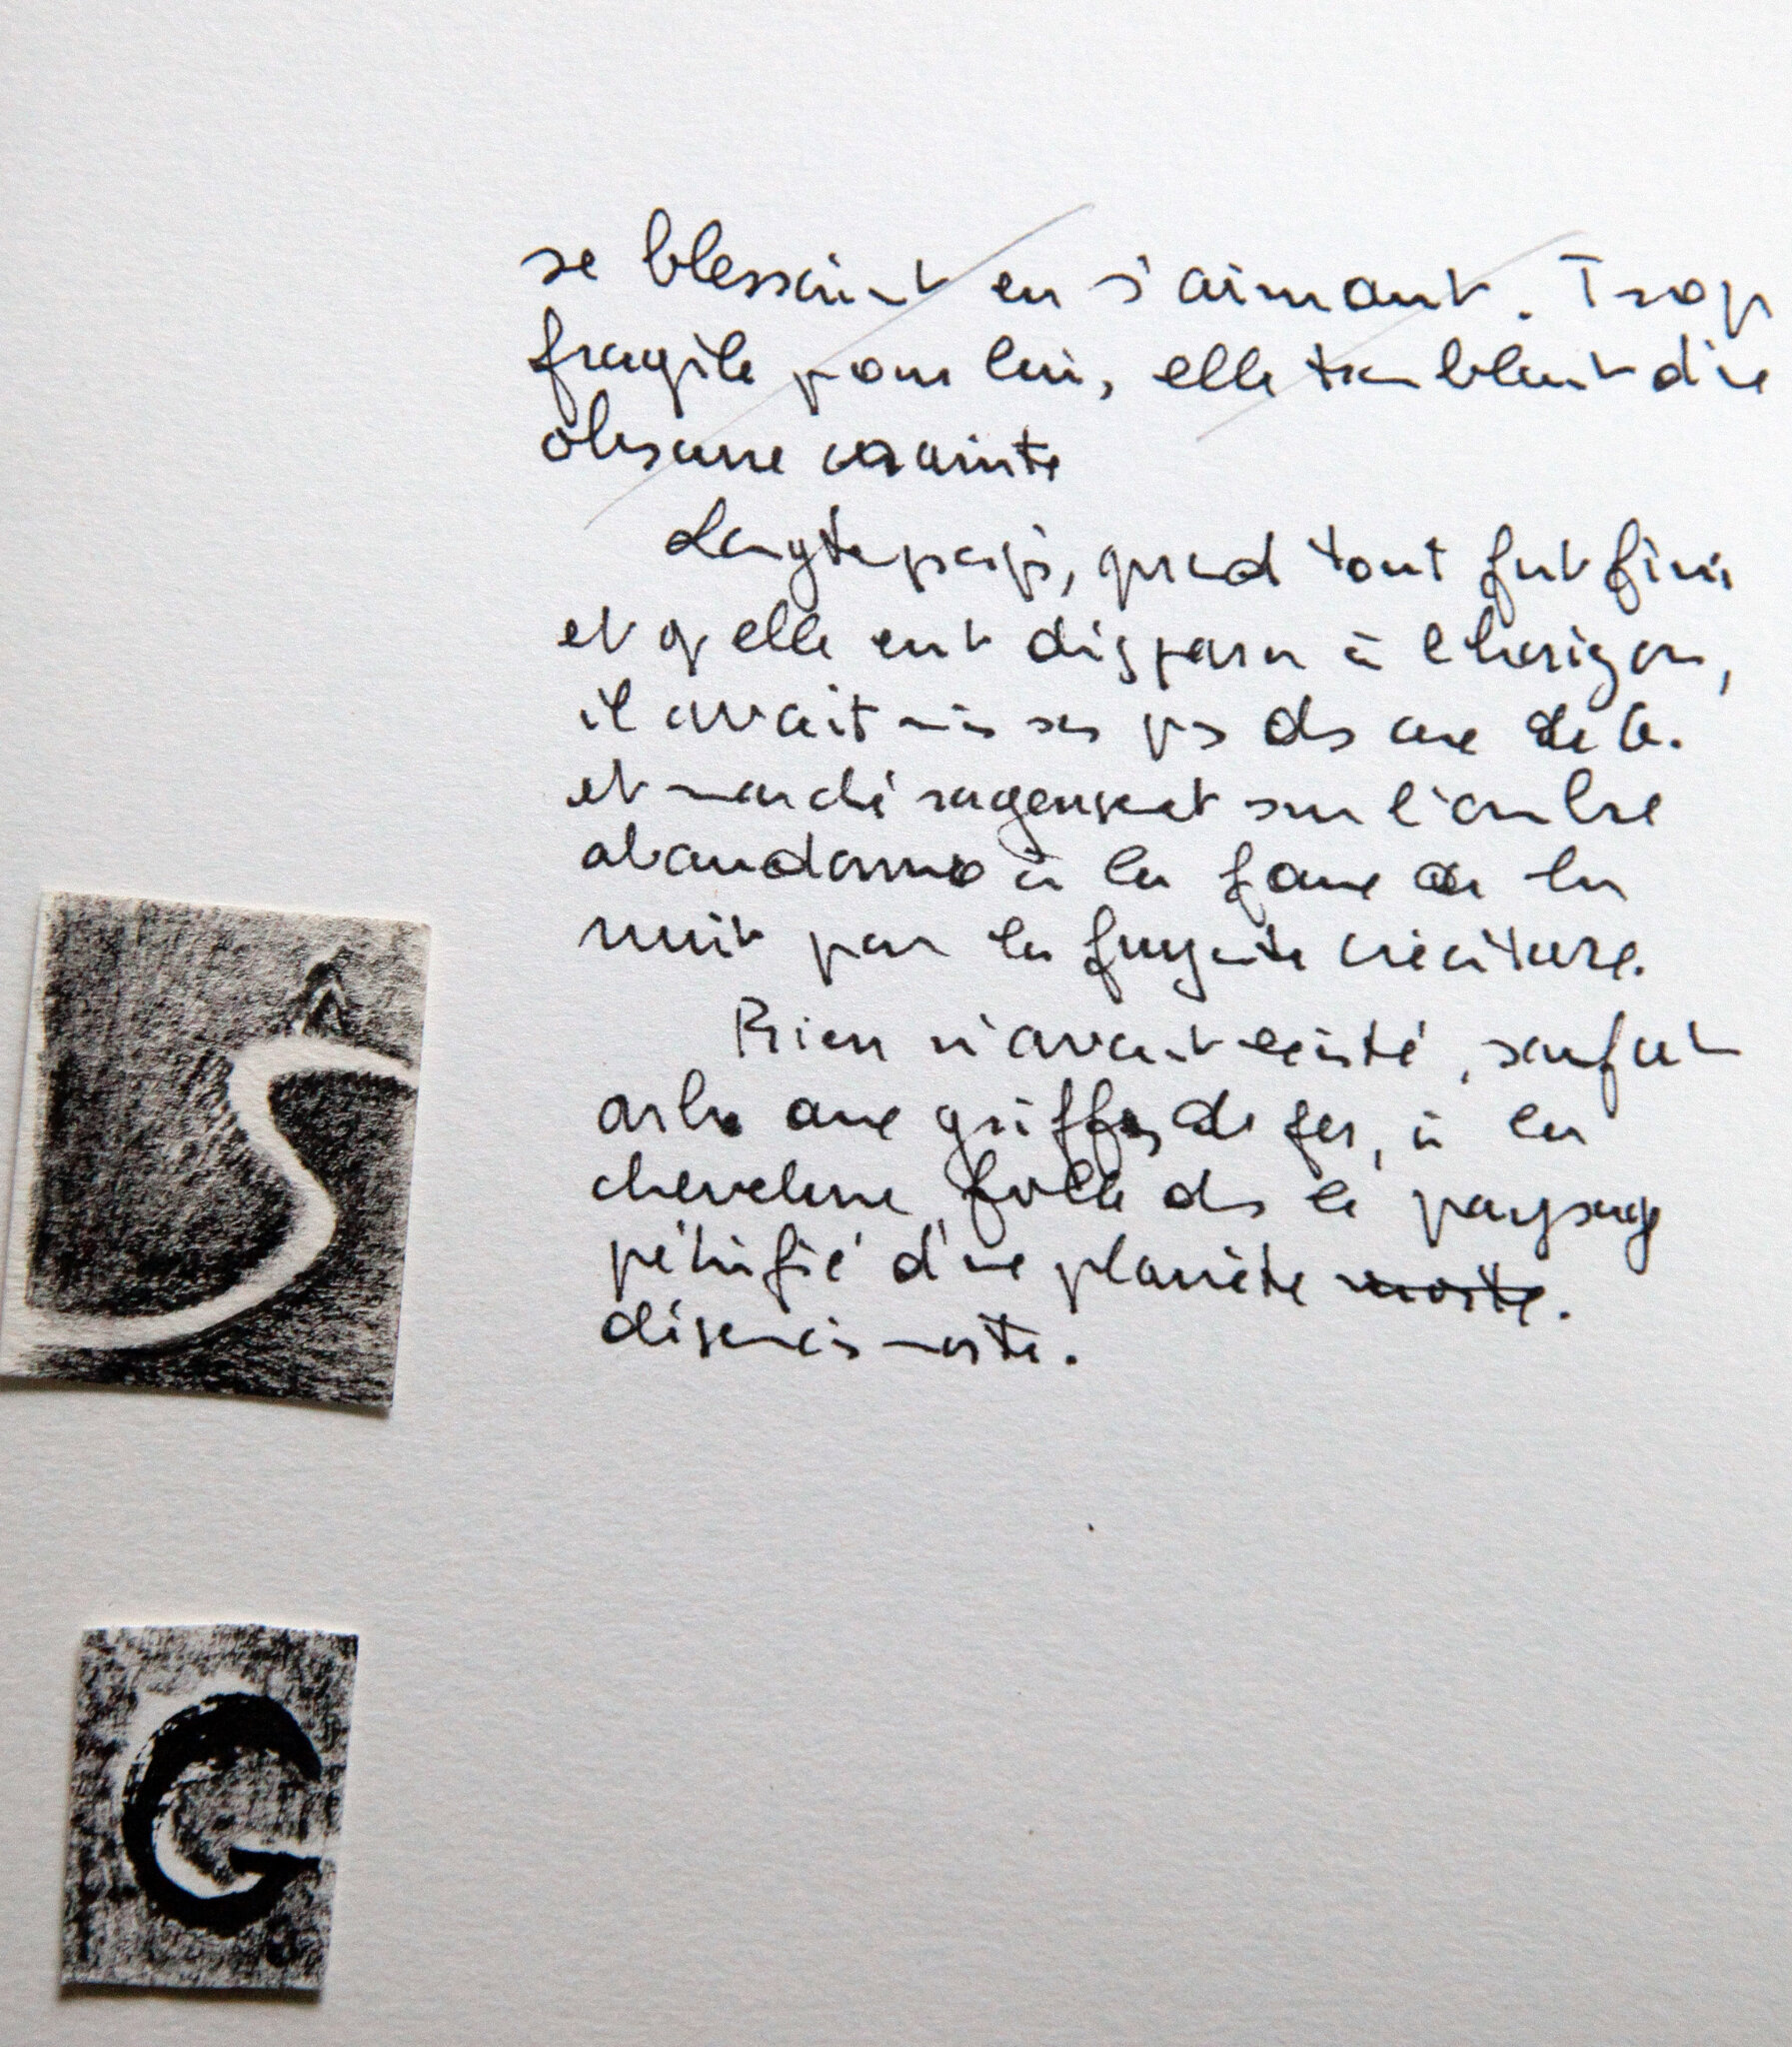 se blessaient en s'aimant. Trop
fragile pour lui, elle tremblait d'une
obscure crainte
Longtemps, quand tout fut fini
et qu'elle eut disparu à l'horizon,
il avait mis ses pas ds ceux de la
et marché rageusement sur l'ombre
abandonnée à la face de la
nuit par la fuyante créature.
Rien n'avait existé, sauf cet
arbre aux griffes de fer, à la
chevelure folle ds le paysage
pétrifié d'une planète morte.
désormais morte.
G